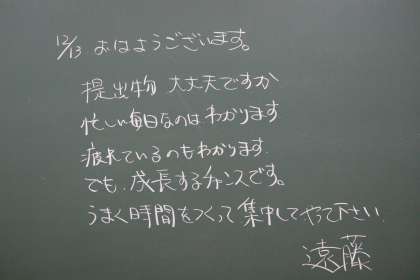 12/13 おはようございます。
提出物 大丈夫ですか
忙しい毎日なのはわかります
疲れているのもわかります.
でも、成長するチャンスです。
うまく時間をつくって集中してやって下さい.
遠藤